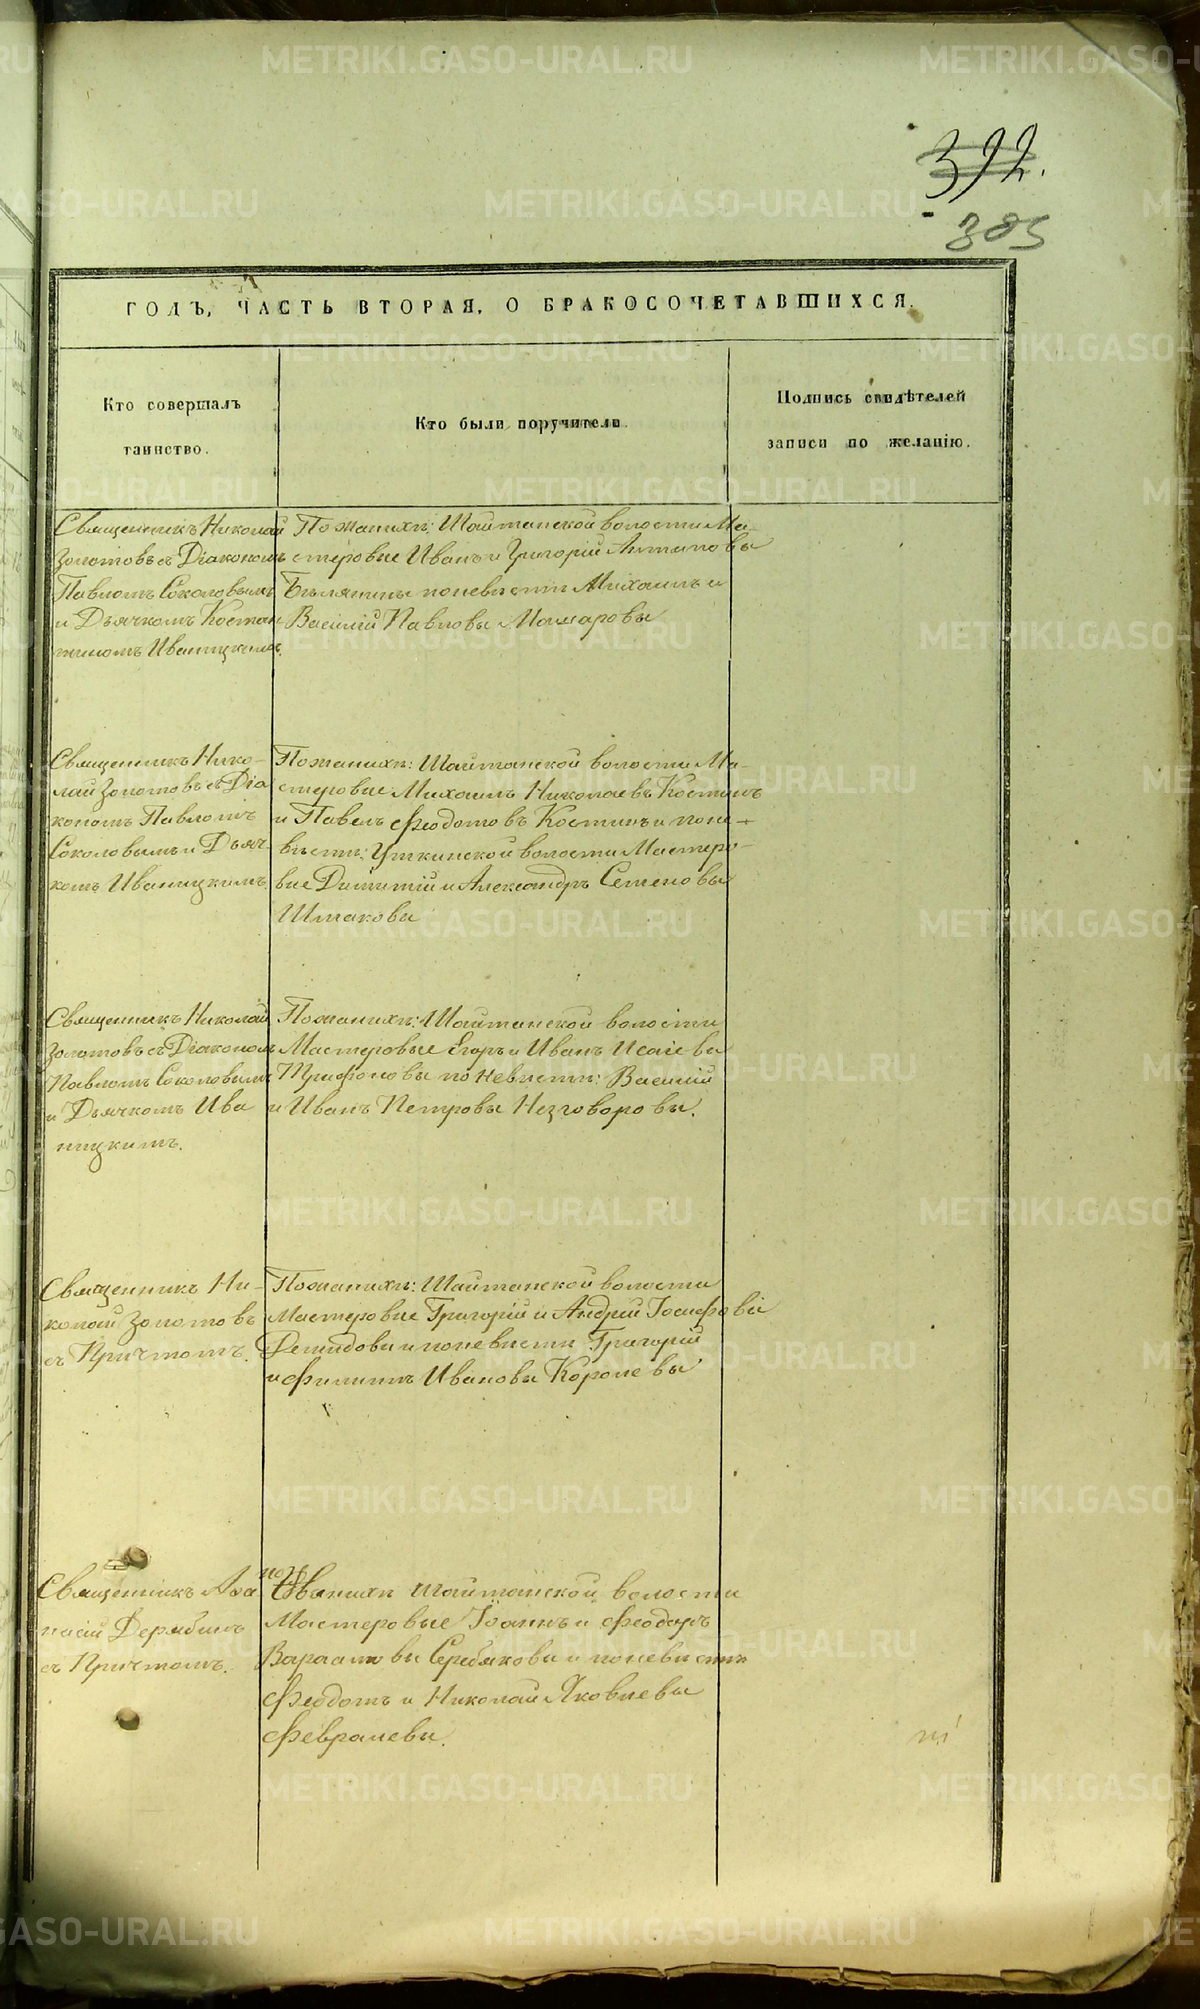 392.
385
ГОДЪ, ЧАСТЬ ВТОРАЯ, О БРАКОСОЧЕТАВШИХСЯ.
Кто совершалъ
таинство.
Кто были поручители.
Подпись свидѣтелей
записи по желанію.
Священникъ Николай
Золотовъ съ Діакономъ
Павломъ Соколовымъ
и Дьячкомъ Констан-
тиномъ Иваницкимъ.
По женихѣ: Шайтанской волости Ма-
стеровые Иванъ и Григорій Антиповы
по невѣсте Михаилъ и
Василій Павловы
Священникъ Нико-
лай Золотовъ съ Діа
кономъ Павломъ
Соколовымъ и Дьяч-
комъ Иваницкимъ
По женихѣ: Шайтанской волости Ма-
стеровые Михаилъ Николаевъ Костинъ
и Павелъ Феодотовъ Костинъ и по не-
вѣсте: Уткинской волости Мастеро-
вые Димитрій и Александръ Семеновы
Шмакова
Священникъ Николай
Золотовъ съ Діакономъ
Павломъ Соколовымъ
и Дьячкомъ Ива
ницкимъ.
По женихѣ: Шайтанской волости
Мастеровые Егоръ и Иванъ Исаіевы
Трифоновы по невѣсте: Василій
и Иванъ Петровы Незговоровы.
Священникъ Ни-
колай Золотовъ
съ Причтомъ.
По женихѣ: Шайтанской волости
Мастеровые Григорій и Андрей Іосифовы
Демидовы и по невѣсте Григорій
и Филиппъ Ивановы Королевы
Священникъ Афа
насій Дерябинъ
съ Причтомъ.
по женихѣ Шайтанской волости
Мастеровые Іоаннъ и Феодоръ
Варлаамовы Серебяковы и по невѣсте
Феодотъ и Николай Яковлевы
Февралевы.
METRIKI.GASO-URAL.RU